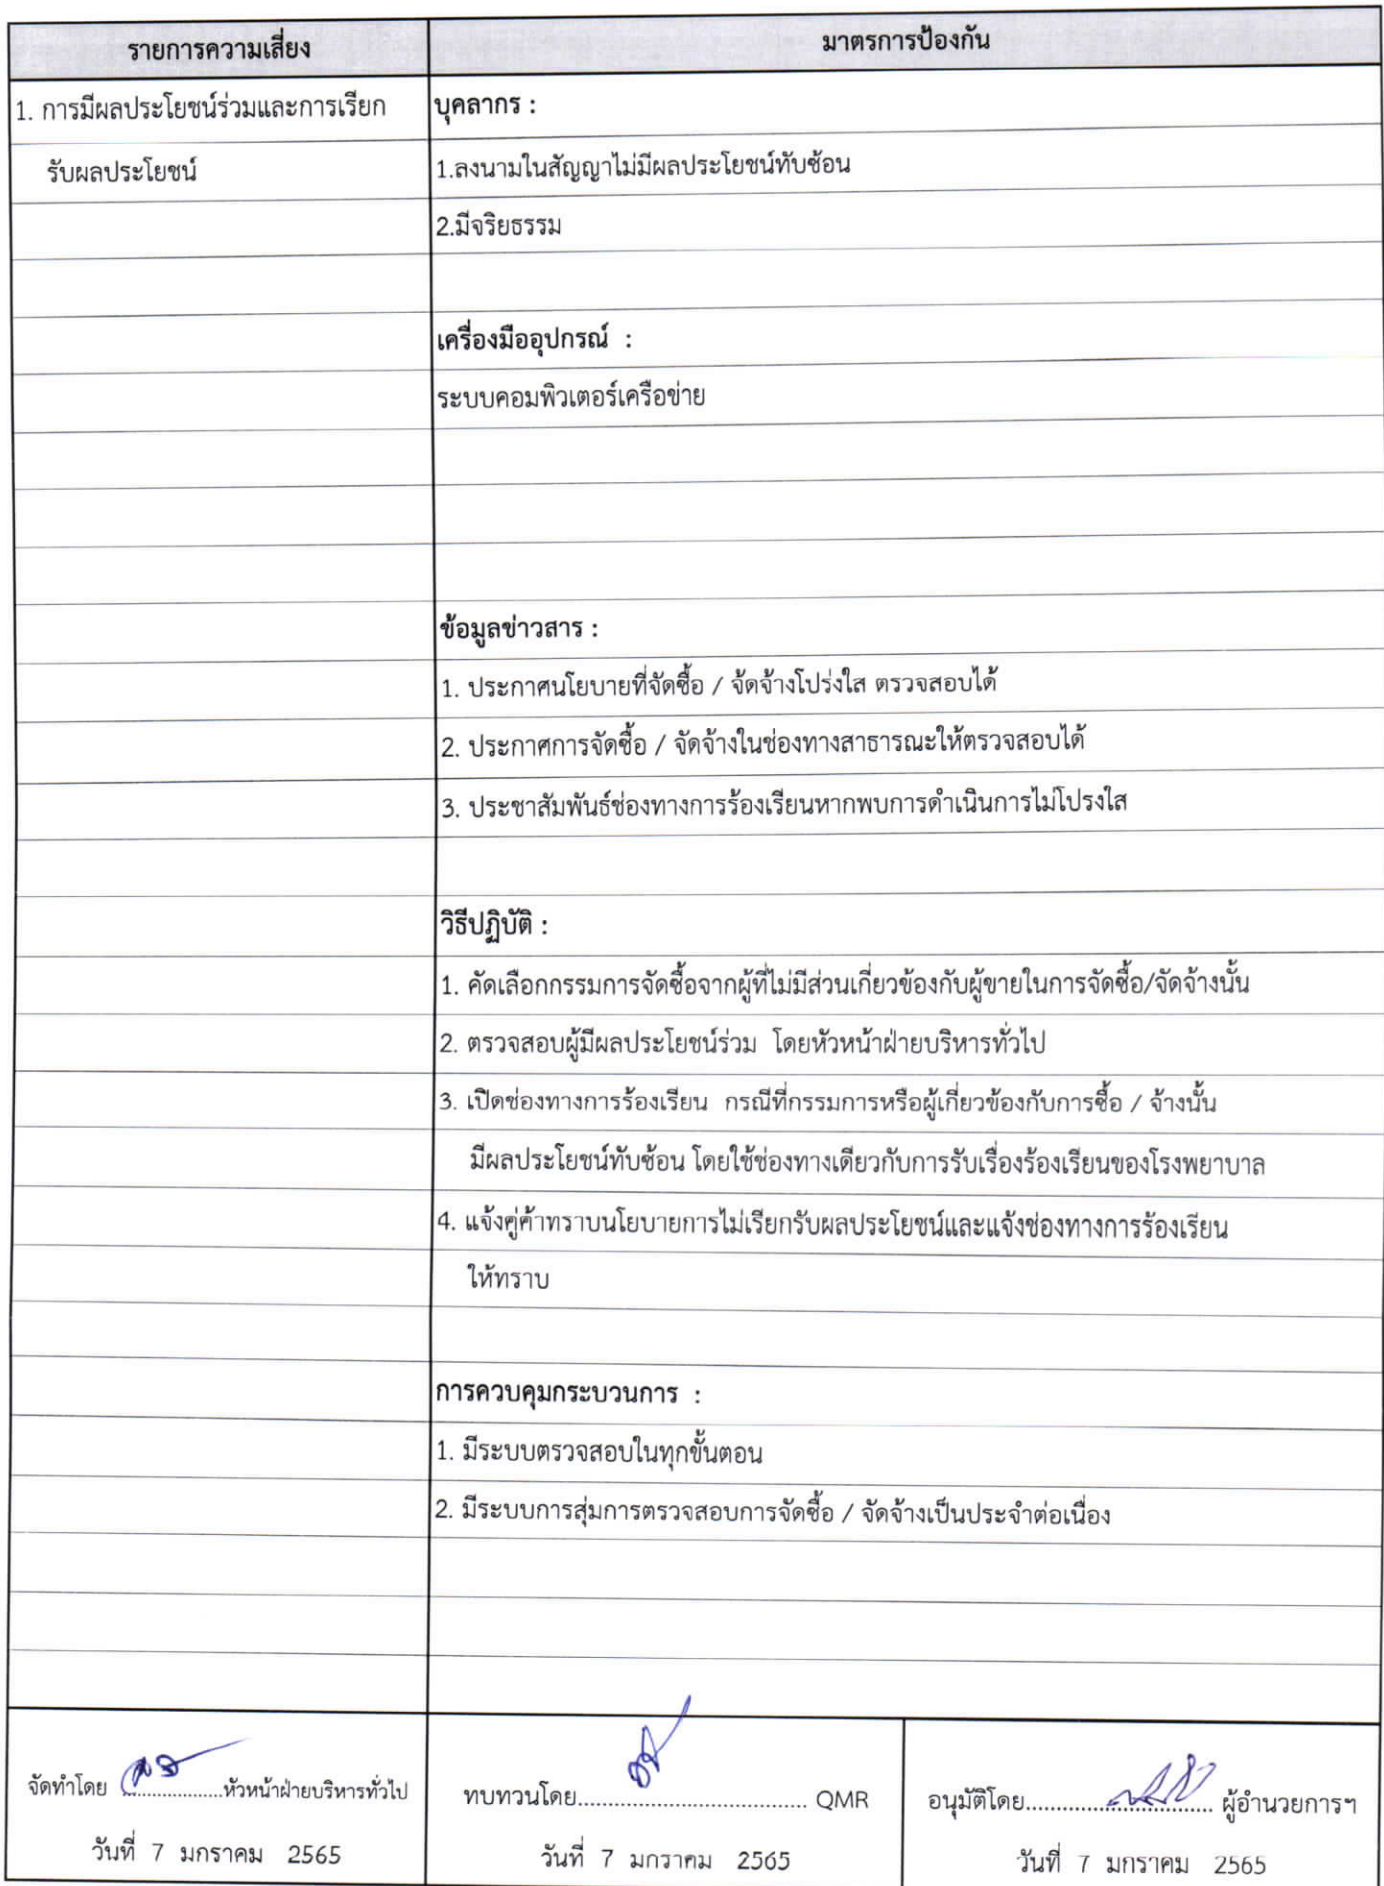 รายการความเสี่ยง
มาตรการป้องกัน
1. การมีผลประโยชน์ร่วมและการเรียก
รับผลประโยชน์
บุคลากร :
1.ลงนามในสัญญาไม่มีผลประโยชน์ทับซ้อน
2.มีจริยธรรม
เครื่องมืออุปกรณ์ :
ระบบคอมพิวเตอร์เครือข่าย
ข้อมูลข่าวสาร :
1. ประกาศนโยบายที่จัดซื้อ / จ้ดจ้างโปร่งใส ตรวจสอบได้
2. ประกาศการจัดซื้อ / จัดจ้างในช่องทางสาธารณะให้ตรวจสอบได้
3. ประชาสัมพันธ์ช่องทางการร้องเรียนหากพบการดำเนินการไม่โปรงใส
วิธีปฏิบัติ :
1. คัดเลือกกรรมการจัดซื้อจากผู้ที่ไม่มีส่วนเกี่ยวข้องกับผู้ขายในการจัดซื้อ/จัดจ้างนั้น
2. ตรวจสอบผู้มีผลประโยชน์ร่วม โดยหัวหน้าฝ่ายบริหารทั่วไป
3. เปิดช่องทางการร้องเรียน กรณีที่กรรมการหรือผู้เกี่ยวข้องกับการซื้อ / จ้างนั้น
มีผลประโยชน์ทับซ้อน โดยใช้ช่องทางเดียวกับการรับเรื่องร้องเรียนของโรงพยาบาล
4. แจ้งคู่ค้าทราบนโยบายการไม่เรียกรับผลประโยชน์และแจ้งช่องทางการร้องเรียน
ให้ทราบ
การควบคุมกระบวนการ :
1. มีระบบตรวจสอบในทุกขั้นตอน
2. มีระบบการสุ่มการตรวจสอบการจัดซื้อ / จัดจ้างเป็นประจำต่อเนื่อง
จัดทำโดย ..................หัวหน้าฝ่ายบริหารทั่วไป
วันที่ 7 มกราคม 2565
ทบทวนโดย...................................... QMR
วันที่ 7 มกราคม 2565
อนุมัติโดย............................... ผู้อำนวยการฯ
วันที่ 7 มกราคม 2565